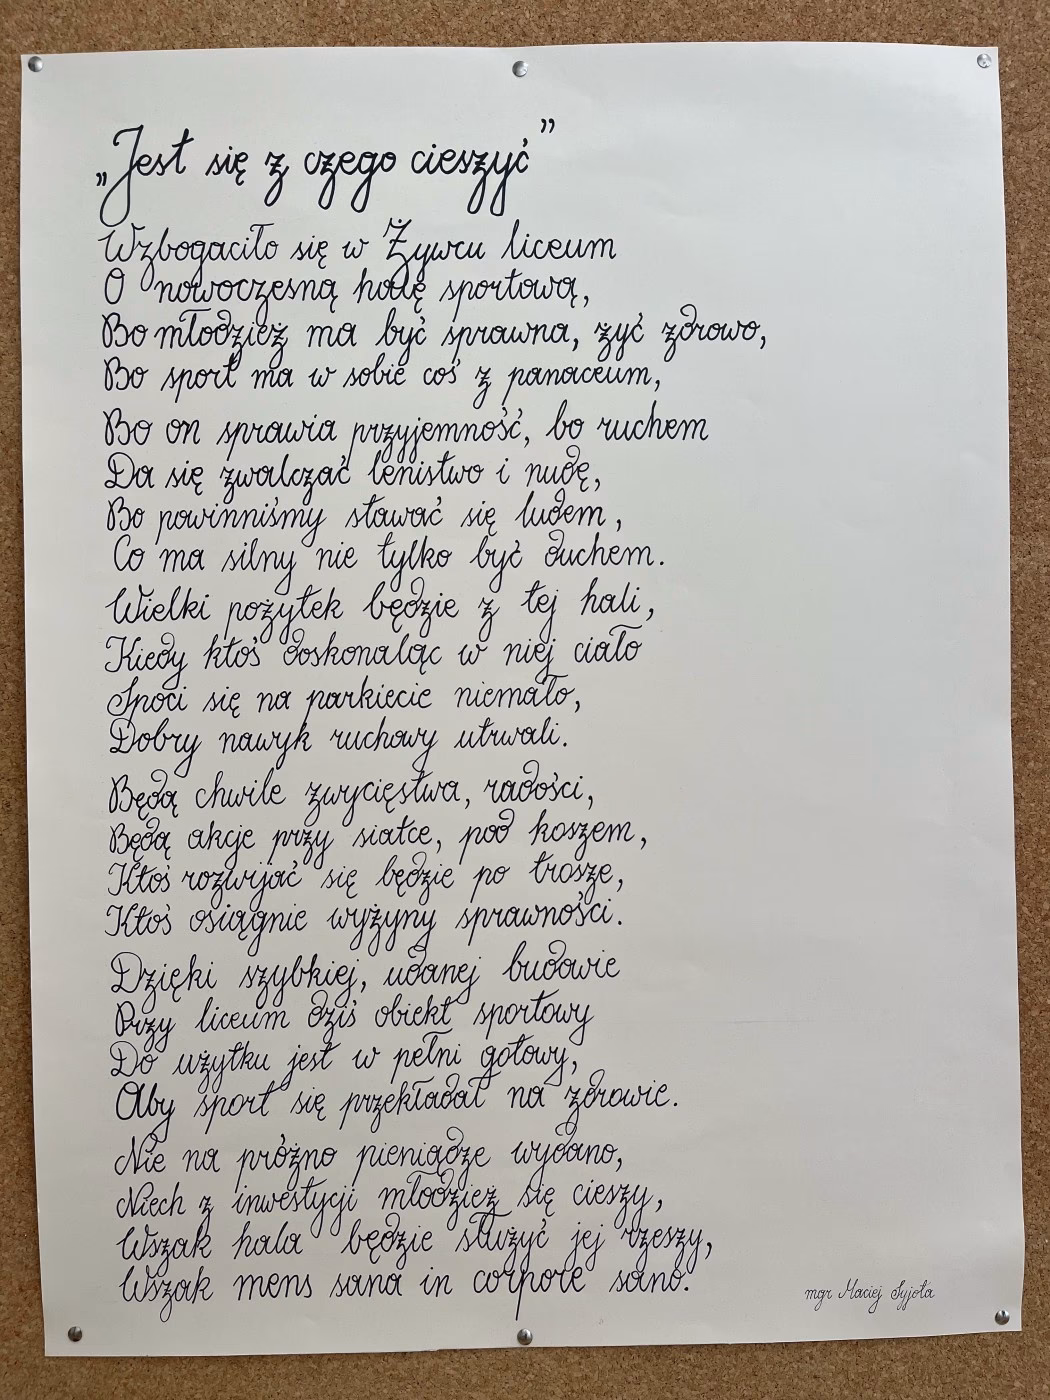 „Jest się z czego cieszyć”
Wzbogaciło się w Żywcu liceum
O nowoczesną halę sportową,
Bo młodzież ma być sprawna, żyć zdrowo,
Bo sport ma w sobie coś z panaceum,
Bo on sprawia przyjemność, bo ruchem
Da się zwalczać lenistwo i nudę,
Bo powinniśmy stawać się ludem,
Co ma silny nie tylko być duchem.
Wielki pożytek będzie z tej hali,
Kiedy ktoś doskonaląc w niej ciało
Spoci się na parkiecie niemało,
Dobry nawyk ruchowy utrwali.
Będą chwile zwycięstwa, radości,
Będą akcje przy siatce, pod koszem,
Ktoś rozwijać się będzie po trosze,
Ktoś osiągnie wyżyny sprawności.
Dzięki szybkiej, udanej budowie
Przy liceum dziś obiekt sportowy
Do użytku jest w pełni gotowy,
Aby sport się przekładał na zdrowie.
Nie na próżno pieniądze wydano,
Niech z inwestycji młodzież się cieszy,
Wszak hala będzie służyć jej rzeszy,
Wszak mens sana in corpore sano.
mgr Maciej Syjota